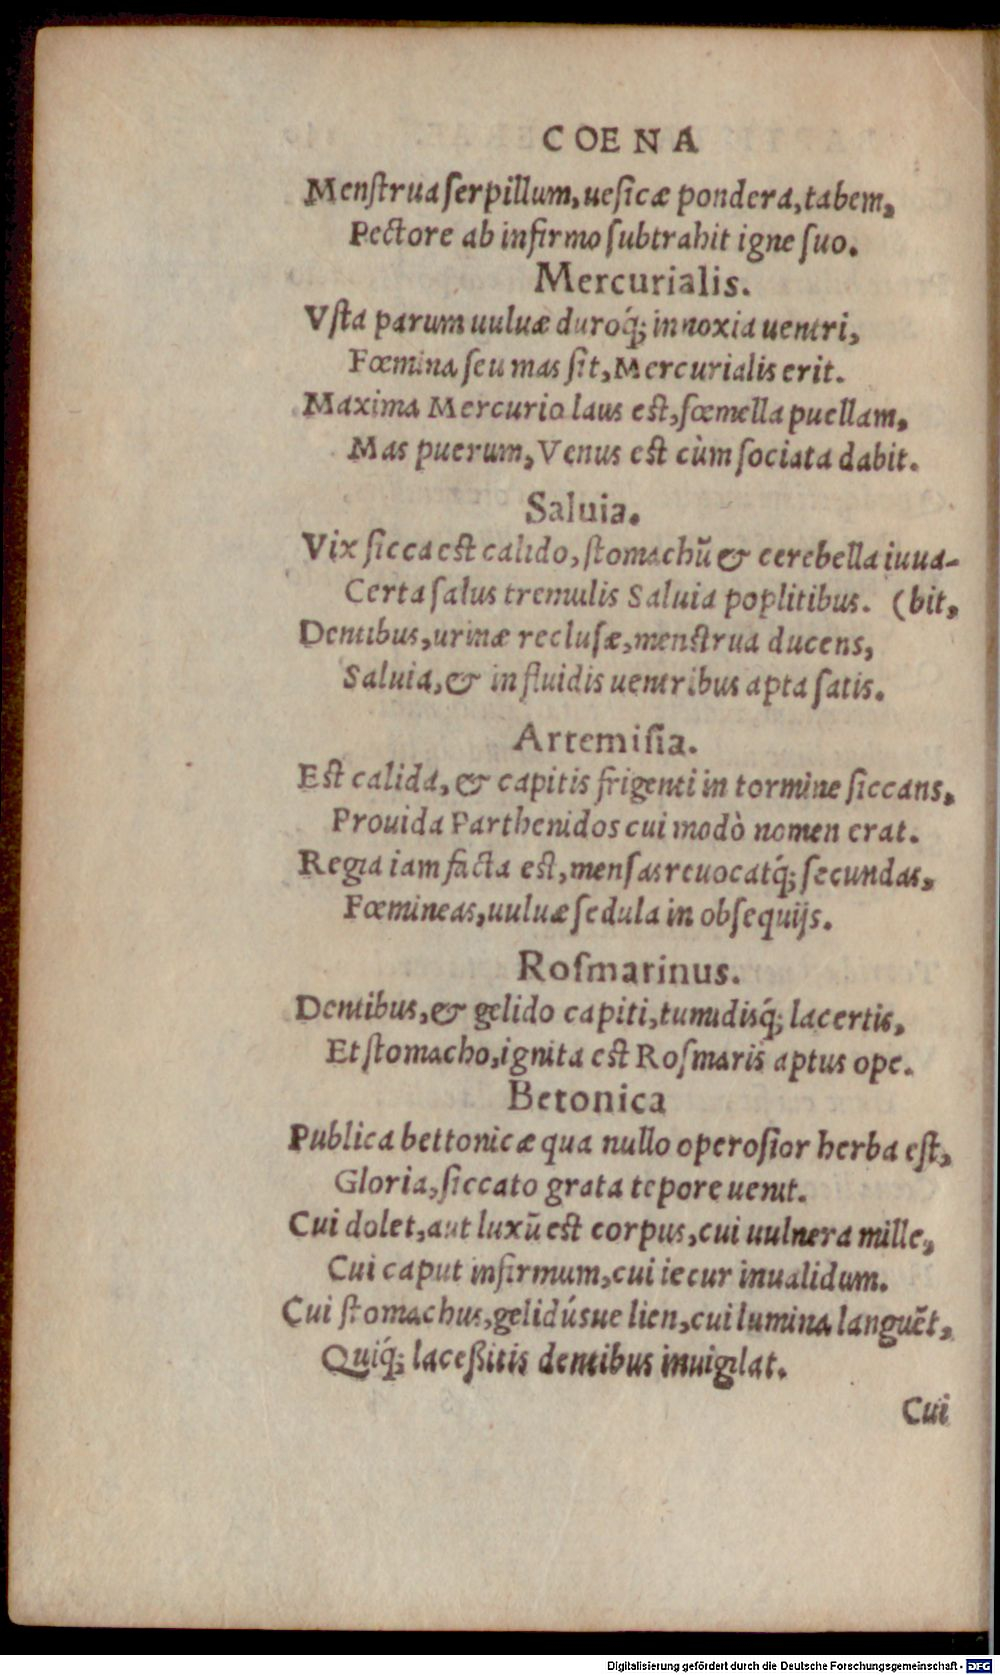 COENA
Menſtrua ſerpillum, ueſicæ pondera, tabem,
Pectore ab infirmo ſubtrahit igne ſuo.
Mercurialis.
Vſta parum uuluæ duroq́; innoxia uentri,
Fœmina ſeu mas ſit, Mercurialis erit.
Maxima Mercurio laus eſt, fœmella puellam,
Mas puerum, Venus eſt cùm ſociata dabit.
Saluia.
Vix ſicca eſt calido, ſtomachũ & cerebella iuua-
Certa ſalus tremulis Saluia poplitibus. (bit,
Dentibus, urinæ recluſæ, menſtrua ducens,
Saluia, & in fluidis uentribus apta ſatis.
Artemiſia.
Eſt calida, & capitis frigenti in tormine ſiccans,
Prouida Parthenidos cui modò nomen erat.
Regia iam facta eſt, menſas reuocatq́; ſecundas,
Fœmineas, uuluæ ſedula in obſequijs.
Roſmarinus.
Dentibus, & gelido capiti, tumidisq́; lacertis,
Et ſtomacho, ignita eſt Roſmaris aptus ope.
Betonica
Publica bettonicæ qua nullo operoſior herba eſt,
Gloria, ſiccato grata tepore uenit.
Cui dolet, aut luxũ eſt corpus, cui uulnera mille,
Cui caput infirmum, cui iecur inualidum.
Cui ſtomachus, gelidúsue lien, cui lumina languẽt,
Quiq́; laceßitis dentibus inuigilat.
Cui
Digitalisierung gefördert durch die Deutsche Forschungsgemeinschaft - DFG